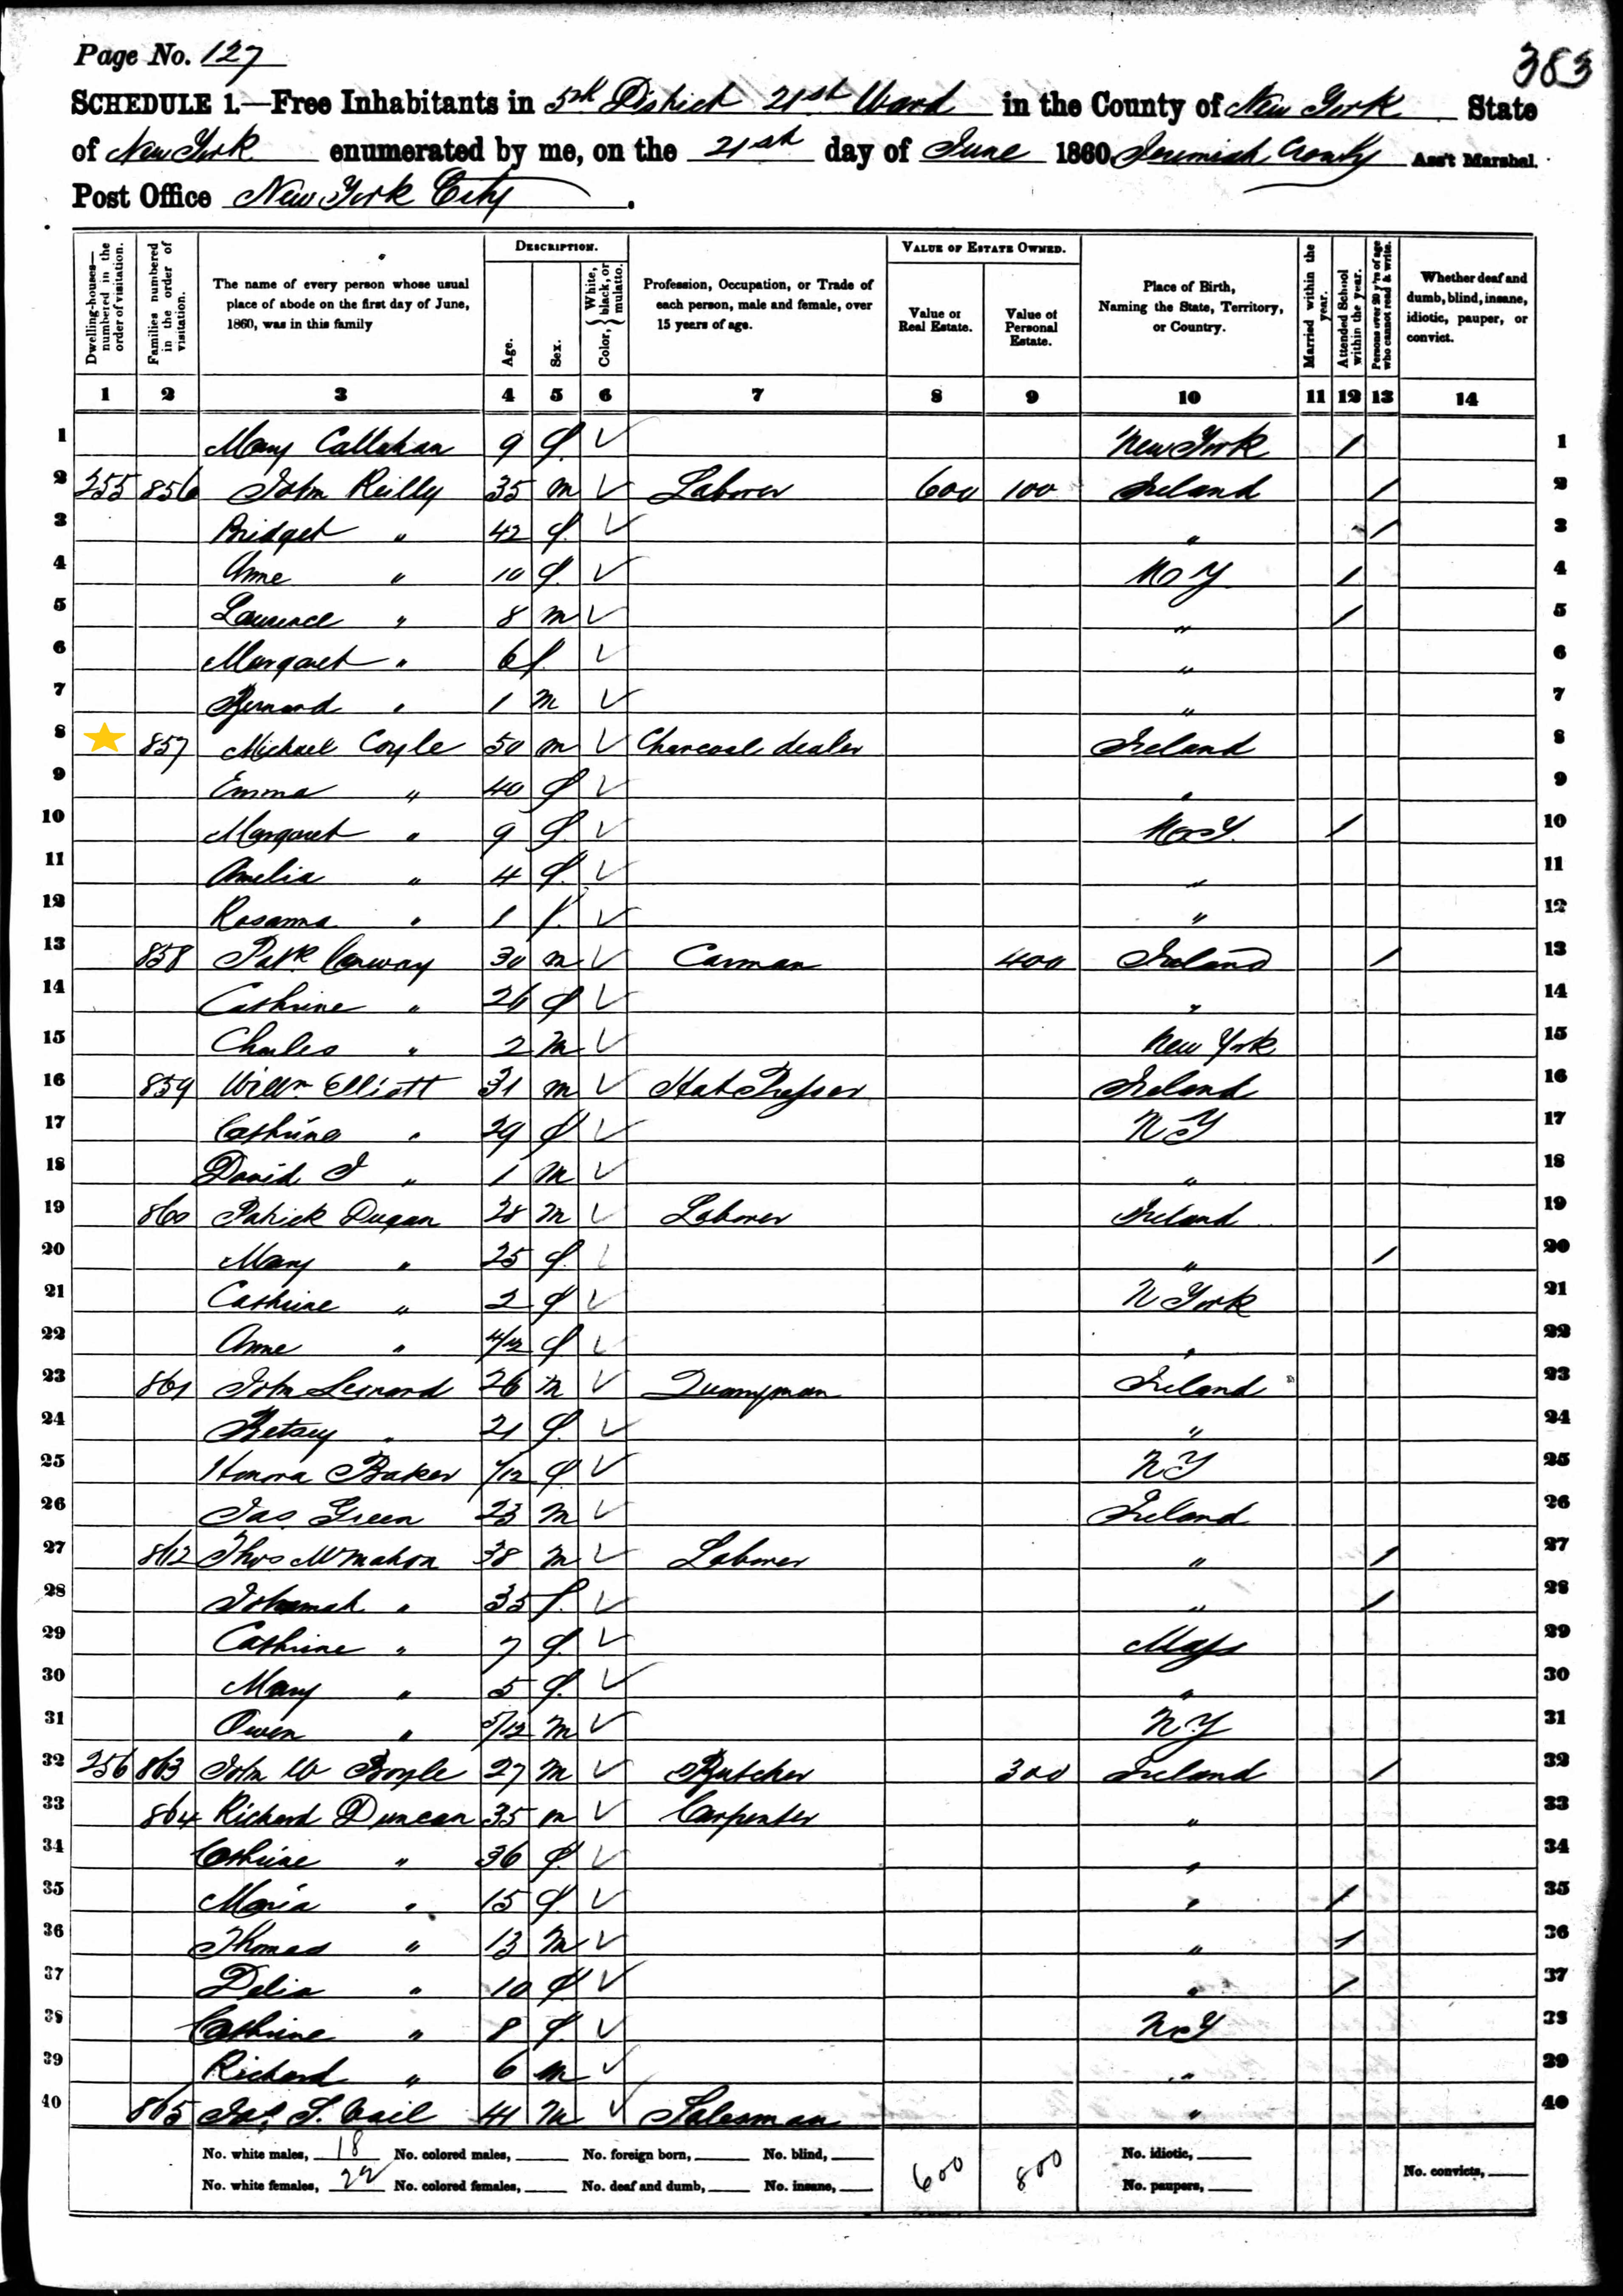 Page No. 127
383
SCHEDULE 1.—Free Inhabitants in 5th District 21st Ward in the County of New York State
of New York enumerated by me, on the 21st day of June 1860. Jeremiah Crowly Ass't Marshal.
Post Office New York City.
Dwelling-houses—numbered in the order of visitation.
Families numbered in the order of visitation.
The name of every person whose usual place of abode on the first day of June, 1860, was in this family
DESCRIPTION.
Age.
Sex.
Color, { White, black, or mulatto.
Profession, Occupation, or Trade of each person, male and female, over 15 years of age.
VALUE OF ESTATE OWNED.
Value of Real Estate.
Value of Personal Estate.
Place of Birth, Naming the State, Territory, or Country.
Married within the year.
Attended School within the year.
Persons over 20 y'rs of age who cannot read & write.
Whether deaf and dumb, blind, insane, idiotic, pauper, or convict.
1 2 3 4 5 6 7 8 9 10 11 12 13 14
1 Mary Callahan 9 f. New York / 1
2 255 856 John Reilly 35 m Laborer 600 100 Ireland / 2
3 Bridget " 42 f. " / 3
4 Anne " 10 f. N Y / 4
5 Laurence " 8 m " / 5
6 Margaret " 6 f. " 6
7 Bernard " 1 m " 7
8 857 Michael Coyle 50 m Charcoal dealer Ireland 8
9 Emma " 40 f " 9
10 Margaret " 9 f. N Y. / 10
11 Amelia " 4 f. " 11
12 Rosanna " 1 f. " 12
13 858 Patk Conway 30 m Carman 400 Ireland / 13
14 Cathrine " 26 f " 14
15 Charles " 2 m New York 15
16 859 Willm Elliott 31 m Hat Presser Ireland 16
17 Cathrine " 29 f N Y 17
18 David J " 1 m " 18
19 860 Patrick Dugan 28 m Laborer Ireland 19
20 Mary " 25 f. " / 20
21 Cathrine " 2 f N York 21
22 Anne " 4/12 f " 22
23 861 John Lenard 26 m Quarryman Ireland 23
24 Betsey " 21 f. " 24
25 Honora Baker 7/12 f N Y 25
26 Jas Green 23 m Ireland 26
27 862 Thos McMahon 38 m Laborer " / 27
28 Johannah " 35 f. " / 28
29 Cathrine " 7 f. Mass 29
30 Mary " 5 f. " 30
31 Owen " 5/12 m N Y 31
32 256 863 John W Boyle 27 m Butcher 300 Ireland / 32
33 864 Richard Duncan 35 m Carpenter " 33
34 Cathrine " 36 f. " 34
35 Maria " 15 f. " / 35
36 Thomas " 13 m " / 36
37 Delia " 10 f " / 37
38 Cathrine " 8 f. N Y 38
39 Richard " 6 m " 39
40 865 Jas. S. Vail 41 m Salesman " 40
No. white males, 18 No. colored males, No. foreign born, No. blind, 600 800 No. idiotic,
No. white females, 22 No. colored females, No. deaf and dumb, No. insane, No. paupers, No. convicts,